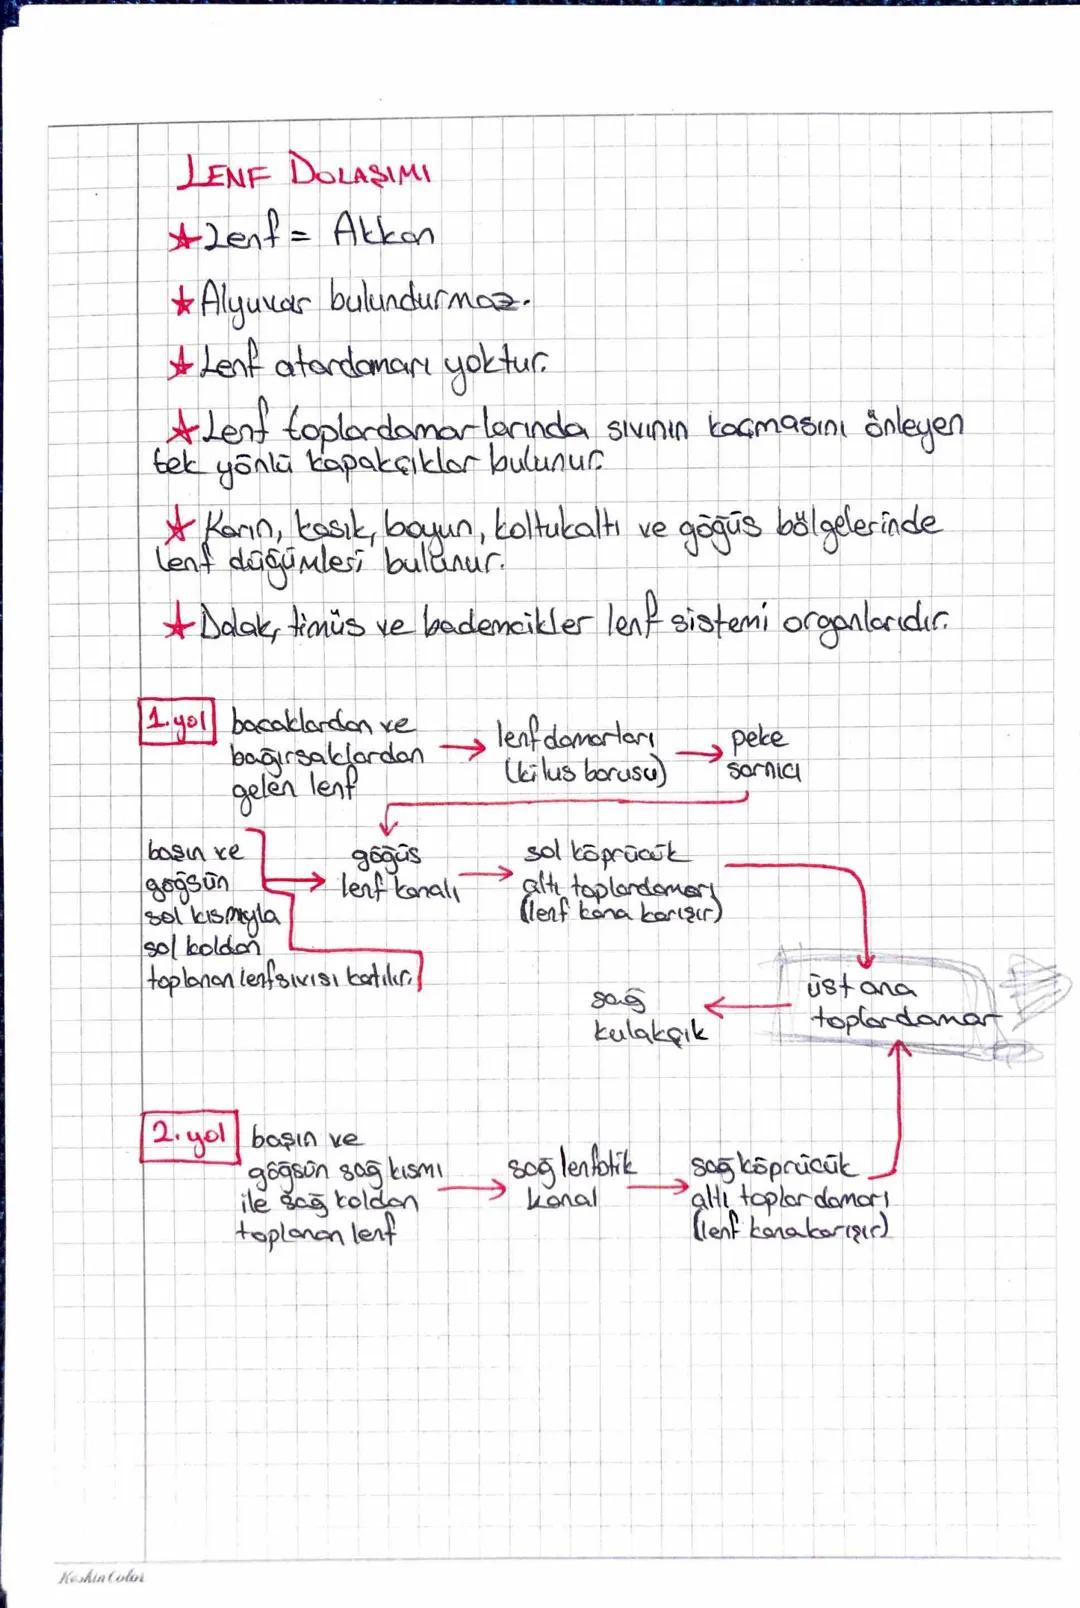 LENF DOLAŞIMI
★ Lenf = Akkan
★ Alyuvar bulundurmaz.
★ Lenf atardamarı yoktur.
★ Lenf toplardamarlarında sıvının kaçmasını önleyen
tek yönlü kapakçıklar bulunur.
★ Karın, kasık, boyun, koltukaltı ve göğüs bölgelerinde
lenf düğümleri bulunur.
★ Dalak, timüs ve bademcikler lenf sistemi organlarıdır.
1. yol
bacaklardan ve
bağırsaklardan
gelen lenf
→ lenf damarları
(kilus borusu)
→ peke
sarnıcı
başın ve
göğsün
sol kısmıyla
sol koldan
toplanan lenf sıvısı katılır.
→ göğüs
lenf kanalı
→ sol köprücük
altı toplardamarı
(lenf kana karışır)
üst ana
toplardamar
sağ
kulakçık
2. yol
başın ve
göğsün sağ kısmı
ile sağ koldan
toplanan lenf
→ sağ lenfatik
kanal
→ sağ köprücük
altı toplardamarı
(lenf kana karışır)
Keskin Color